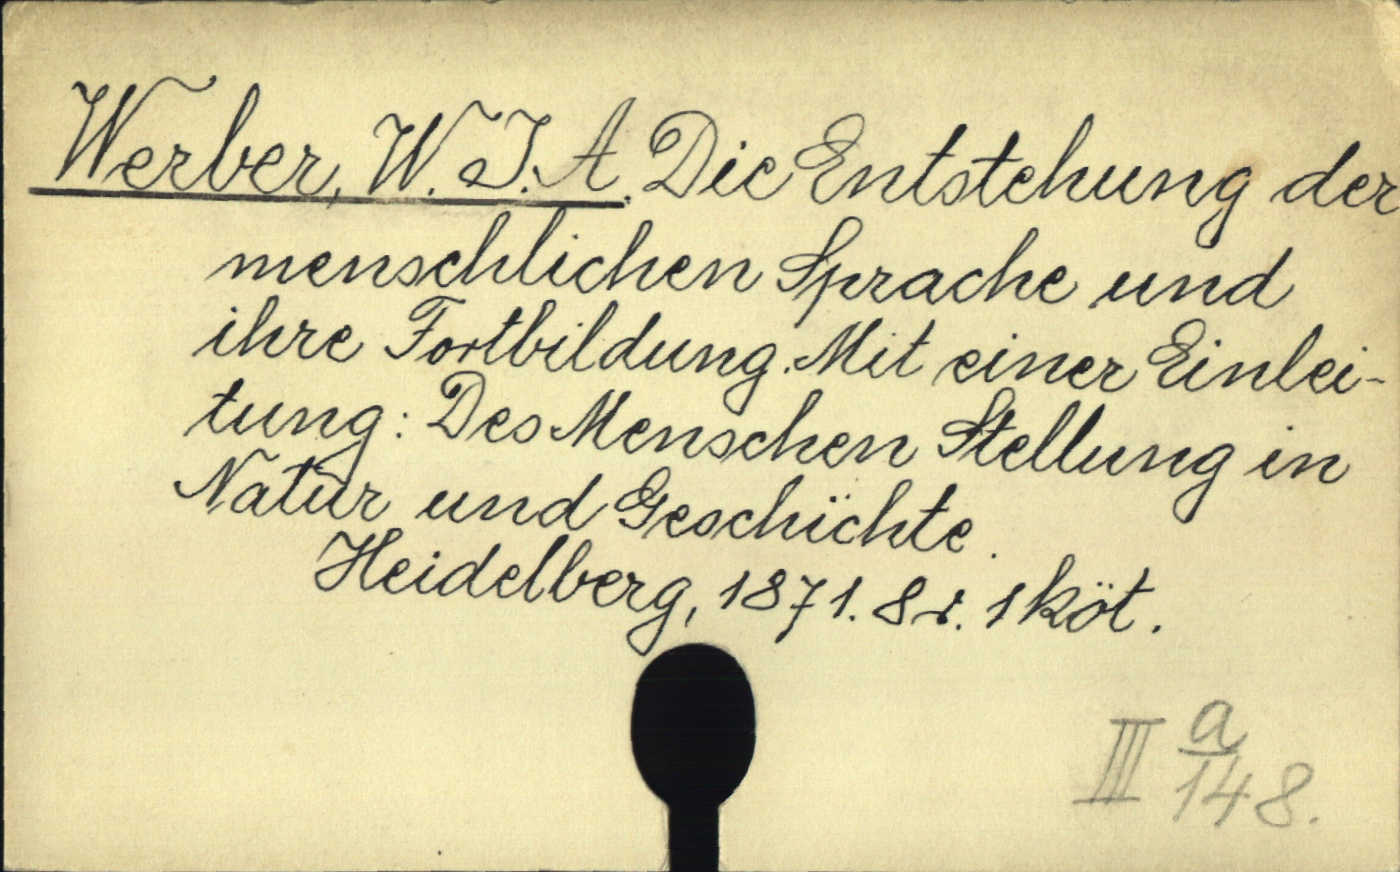 Werber, W. J. A. Die Entstehung der
menschlichen Sprache und
ihre Fortbildung. Mit einer Einlei-
tung: Des Menschen Stellung in
Natur und Geschichte.
Heidelberg, 1871. 8 r. 1 köt.
III a/148.